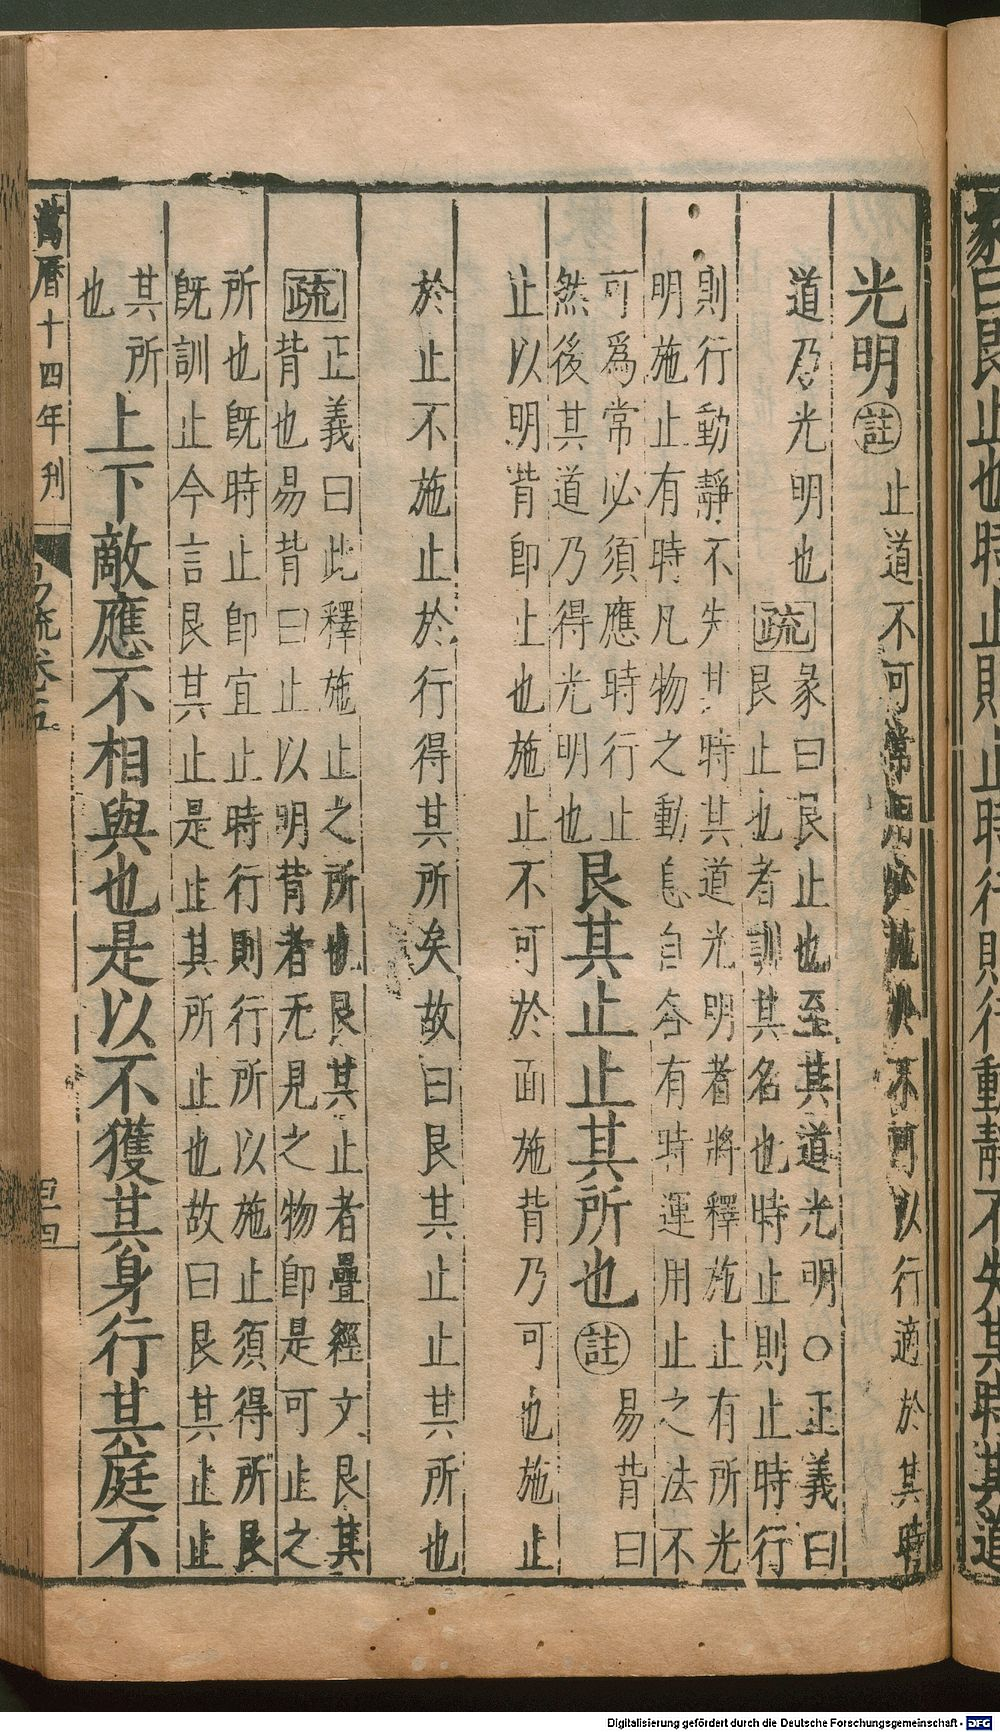 彖曰艮止也時止則止時行則行動靜不失其時其道
光明註止道不可常用必施於不可以行適於其時
道乃光明也疏
彖曰艮止也至其道光明○正義曰
艮止也者訓其名也時止則止時行
則行動靜不失其時其道光明者將釋施止有所光
明施止有時凡物之動息自各有時運用止之法不
可爲常必須應時行止
然後其道乃得光明也
艮其止止其所也註易背曰
止以明背即止也施止不可於面施背乃可也施止
於止不施止於行得其所矣故曰艮其止止其所也
疏
正義曰此釋施止之所也艮其止者疊經文艮其
背也易背曰止以明背者无見之物即是可止之
所也既時止即宜止時行則行所以施止須得所艮
既訓止今言艮其止是止其所止也故曰艮其止止
其所
也
上下敵應不相與也是以不獲其身行其庭不
萬曆十四年刊
易疏卷五
Digitalisierung gefördert durch die Deutsche Forschungsgemeinschaft - DFG